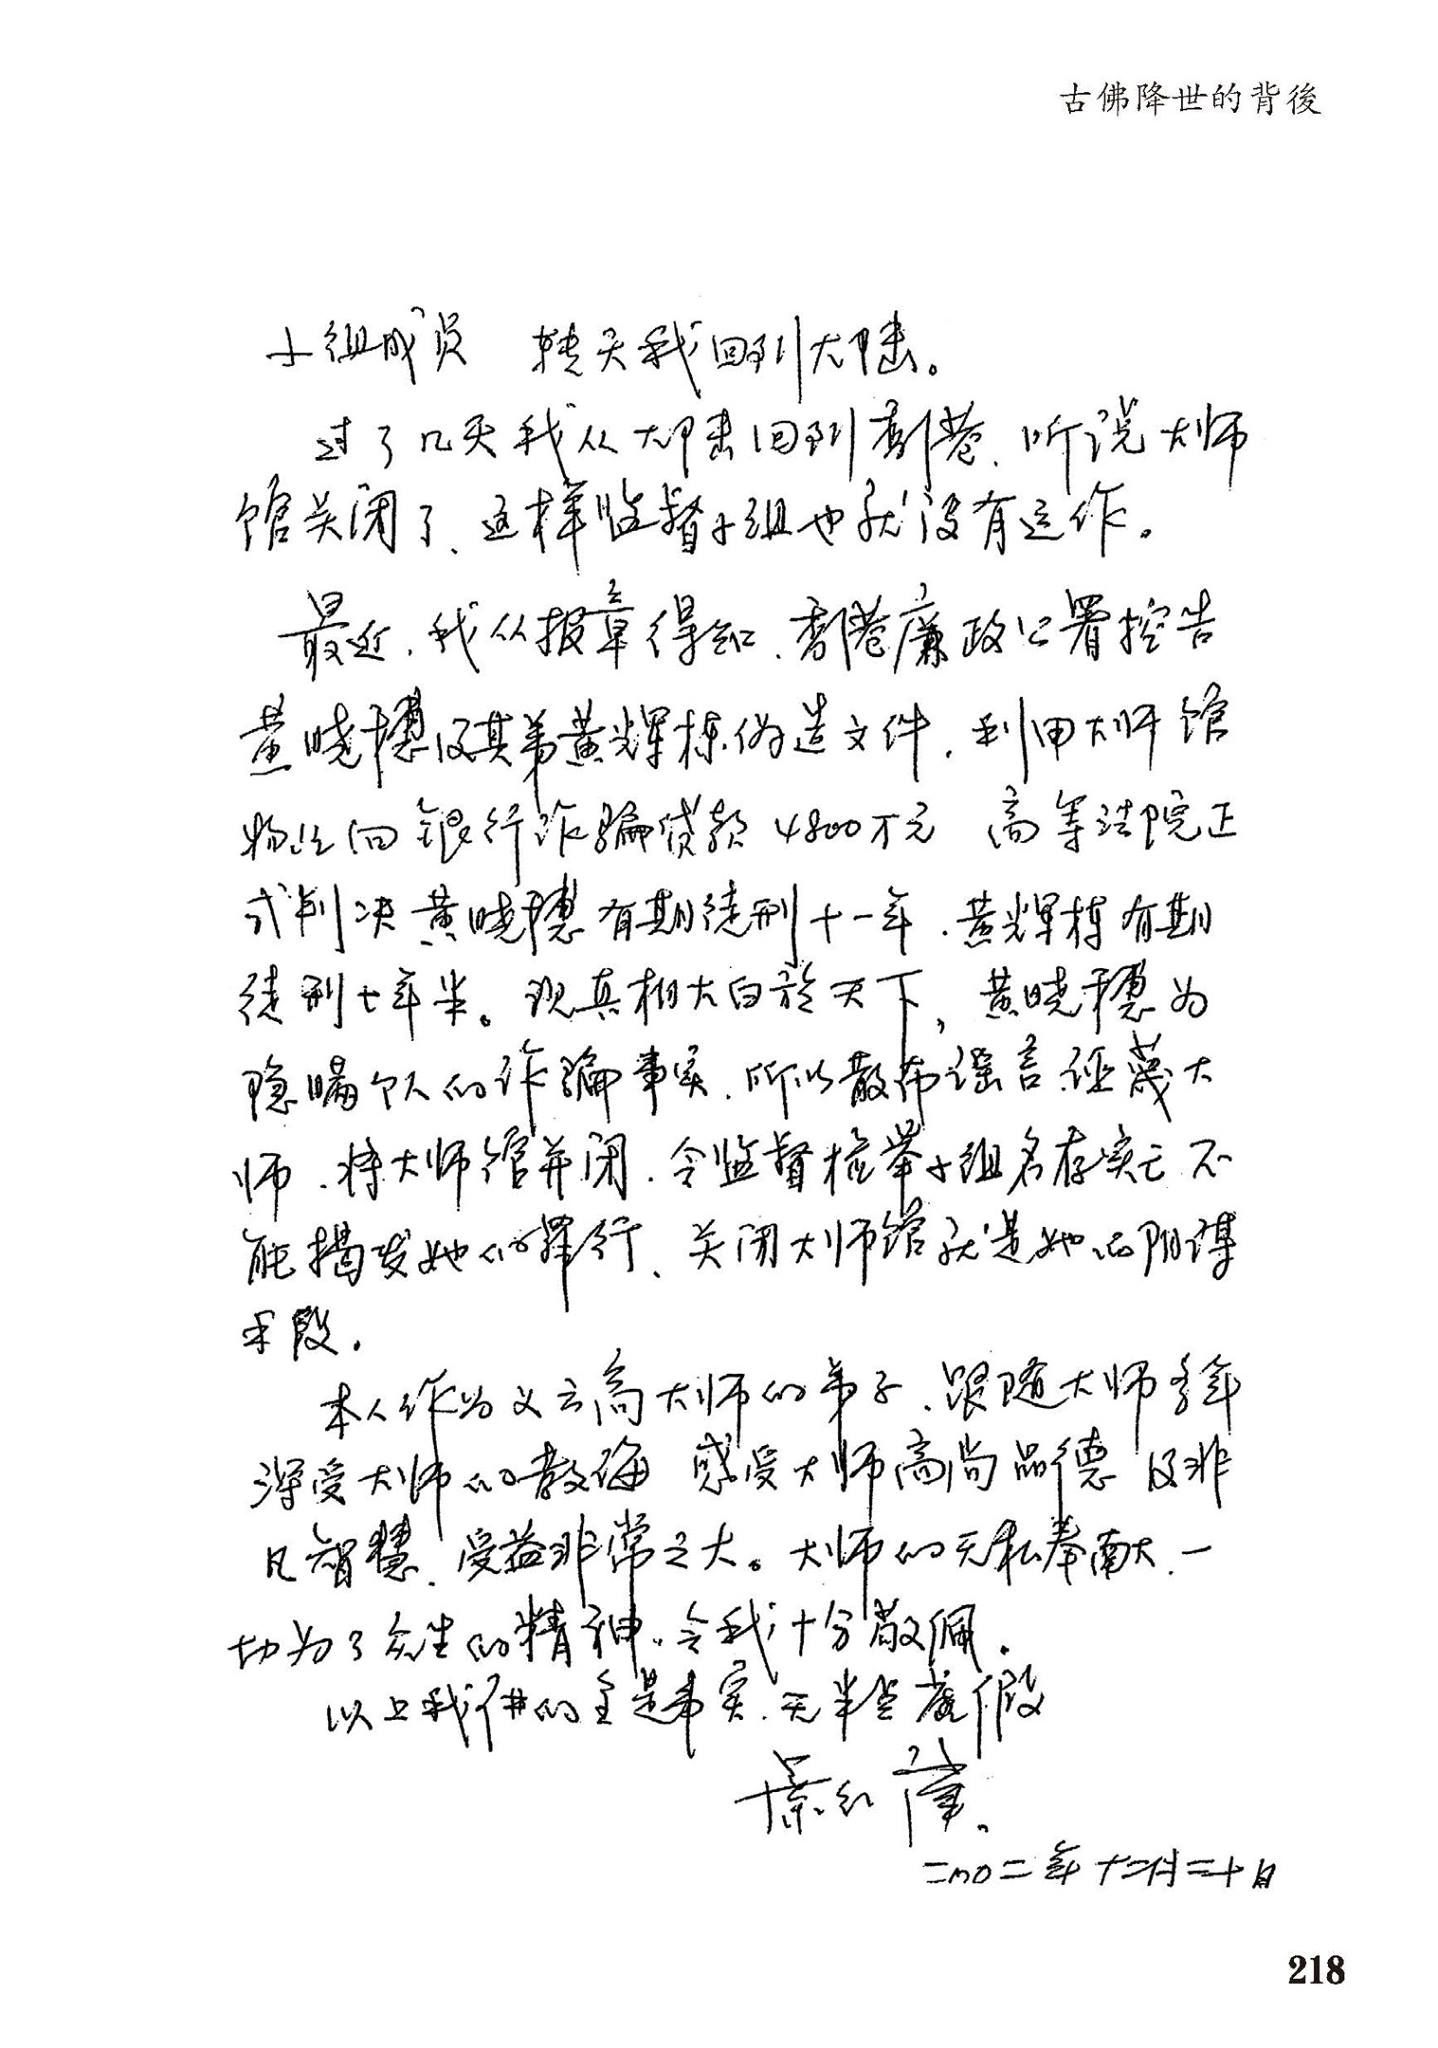 古佛降世的背後
小组成员 转天我回到大陆。
过了几天我从大陆回到香港、听说大师
馆关闭了、这样监督小组也就没有运作。
最近,我从报章得知、香港廉政公署控告
黄晓穗及其弟黄辉栋伪造文件,利用大师馆
物业向银行诈骗贷款4800万元 高等法院正
式判决黄晓穗有期徒刑十一年、黄辉栋有期
徒刑七年半。现真相大白於天下,黄晓穗为
隐瞒个人的诈骗事实、所以散布谣言诬蔑大
师、将大师馆关闭、令监督检举小组名存实亡不
能揭发她的罪行、关闭大师馆就是她的阴谋
手段.
本人作为义云高大师的弟子、跟随大师多年
深受大师的教诲 感受大师高尚品德 及非
凡智慧、受益非常之大。大师的无私奉献、一
切为了众生的精神、令我十分敬佩.
以上我讲的全是事实、无半点虚假
二〇〇二年十二月二十日
218